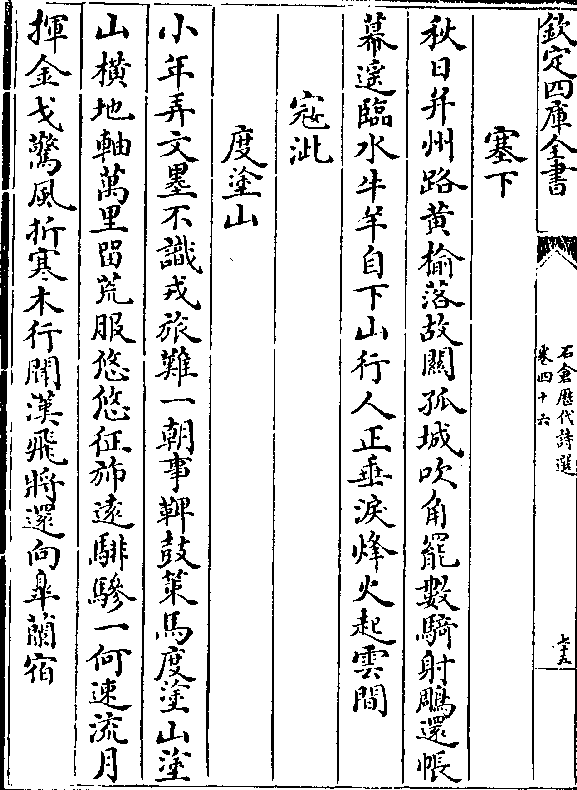 欽定四庫全書
石倉歷代詩選
卷四十六
七十五
塞下
秋日并州路黄榆落故關孤城吹角罷數騎射鵰還帳
幕遥臨水牛羊自下山行人正垂淚烽火起雲間
寇泚
度塗山
小年弄文墨不識戎旅難一朝事鞞鼓策馬度塗山塗
山横地軸萬里留荒服悠悠征斾逺騑驂一何速流月
揮金戈驚風折寒木行聞漢飛將還向臯蘭宿